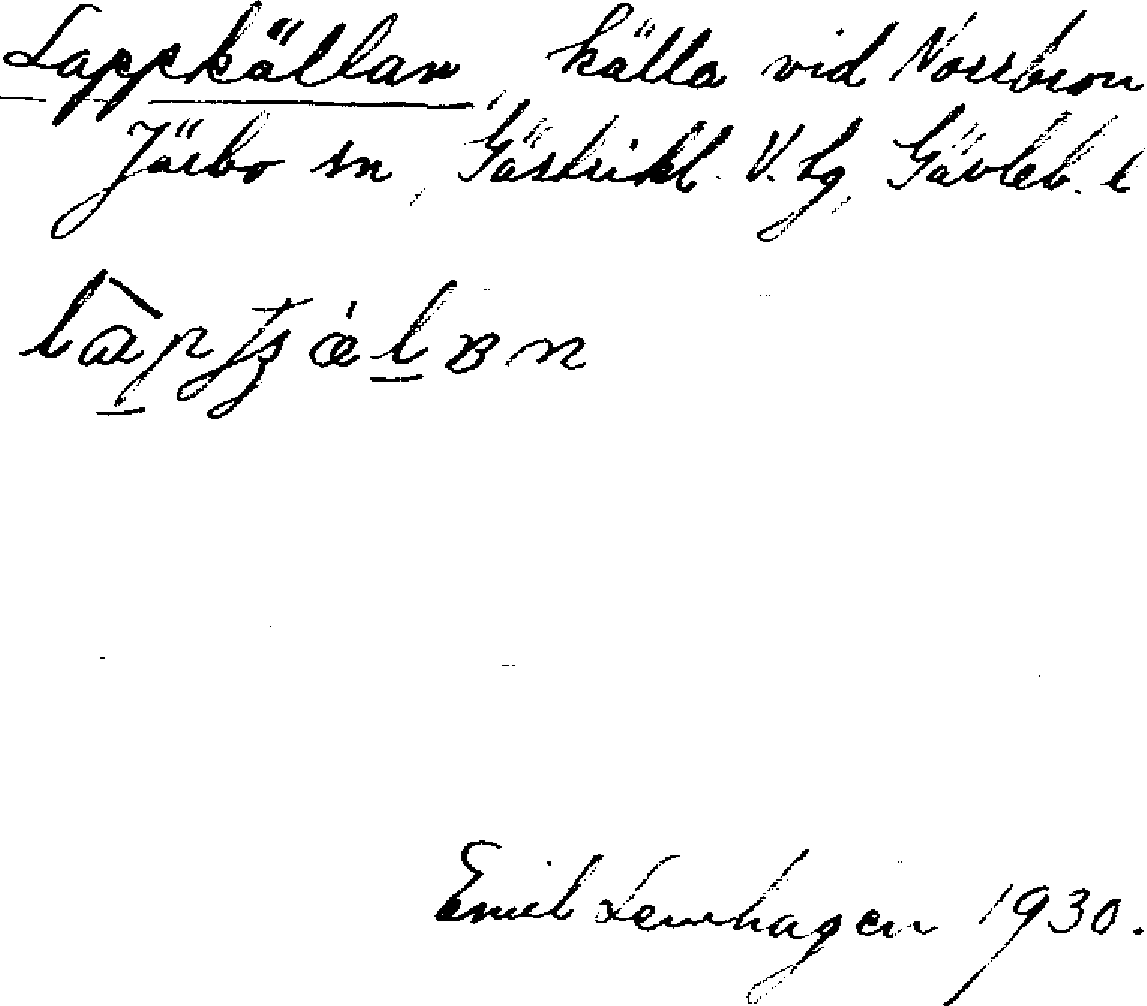 Lappkällan, källa vid Norrbron
Järbo sn, Gästrikl. V. tg, Gävleb. l
Emil Lewhagen 1930.